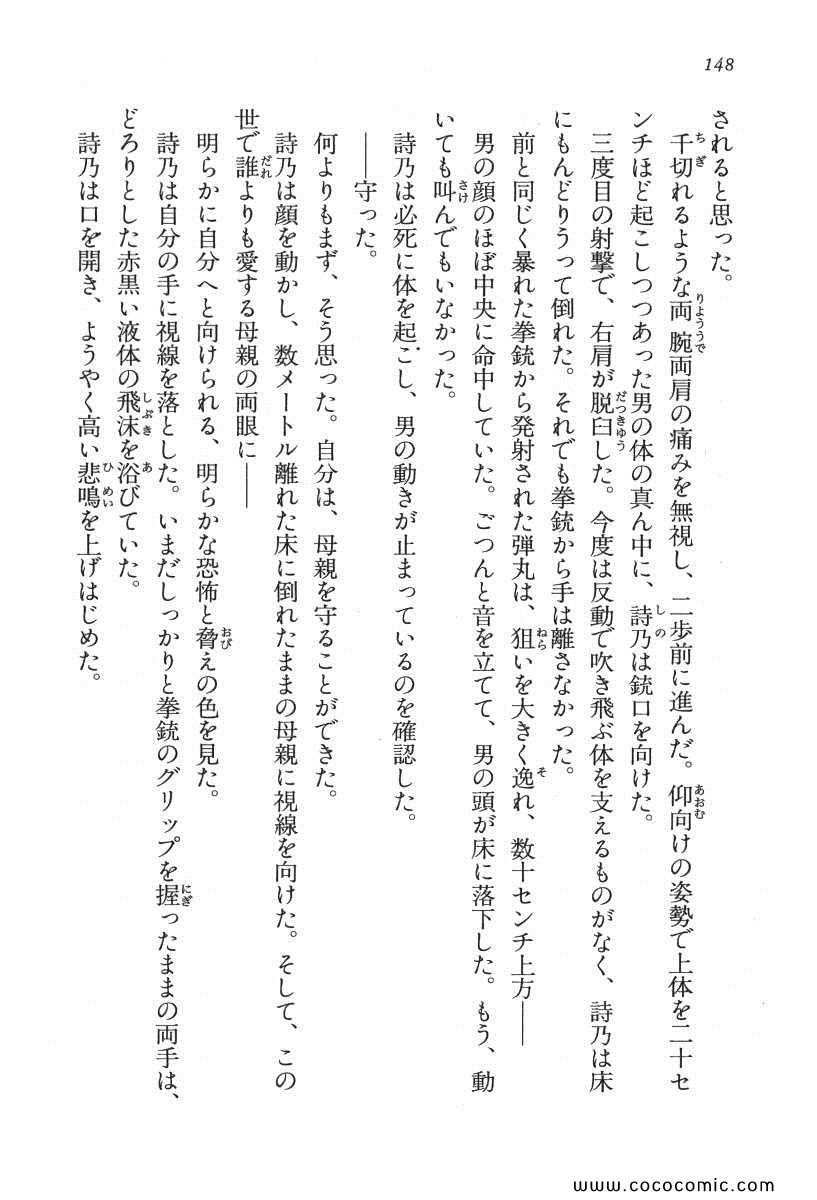 148
されると思った。
千切れるような両腕両肩の痛みを無視し、二歩前に進んだ。仰向けの姿勢で上体を二十セ
ンチほど起こしつつあった男の体の真ん中に、詩乃は銃口を向けた。
三度目の射撃で、右肩が脱臼した。今度は反動で吹き飛ぶ体を支えるものがなく、詩乃は床
にもんどりうって倒れた。それでも拳銃から手は離さなかった。
前と同じく暴れた拳銃から発射された弾丸は、狙いを大きく逸れ、数十センチ上方――
男の顔のほぼ中央に命中していた。ごつんと音を立てて、男の頭が床に落下した。もう、動
いても叫んでもいなかった。
詩乃は必死に体を起こし、男の動きが止まっているのを確認した。
――守った。
何よりもまず、そう思った。自分は、母親を守ることができた。
詩乃は顔を動かし、数メートル離れた床に倒れたままの母親に視線を向けた。そして、この
世で誰よりも愛する母親の両眼に――
明らかに自分へと向けられる、明らかな恐怖と脅えの色を見た。
詩乃は自分の手に視線を落とした。いまだしっかりと拳銃のグリップを握ったままの両手は、
どろりとした赤黒い液体の飛沫を浴びていた。
詩乃は口を開き、ようやく高い悲鳴を上げはじめた。
www.cococomic.com